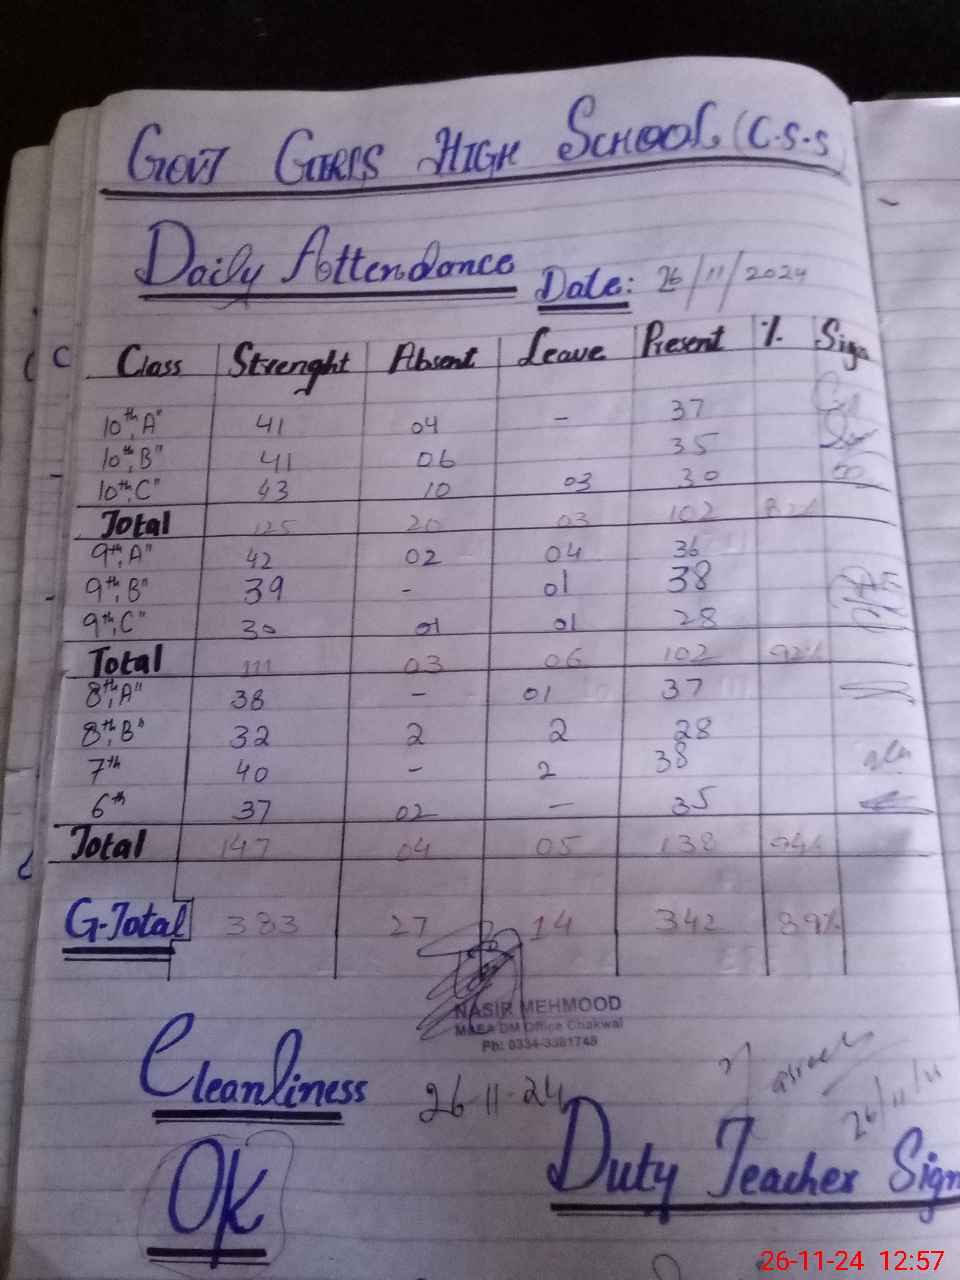 GOVT GIRLS HIGH SCHOOL (C.S.S
Daily Attendance Date: 26/11/2024
C Class Strenght Absent Leave Present %. Sign
10th,A" 41 04 - 37
10th,B" 41 06 35
10th,C" 43 10 03 30
Total 125 20 03 102 82%
9th,A" 42 02 04 36
9th,B" 39 - 01 38
9th,C" 30 01 01 28
Total 111 03 06 102 92%
8th,A" 38 - 01 37
8th,B" 32 2 2 28
7th 40 - 2 38
6th 37 02 - 35
Total 147 04 05 138 94%
G-Total 383 27 14 342 89%
NASIR MEHMOOD
M&EA DM Office Chakwal
Ph: 0334-3381748
Cleanliness 26-11-24
26/11/
Ok Duty Teacher Sign
26-11-24 12:57